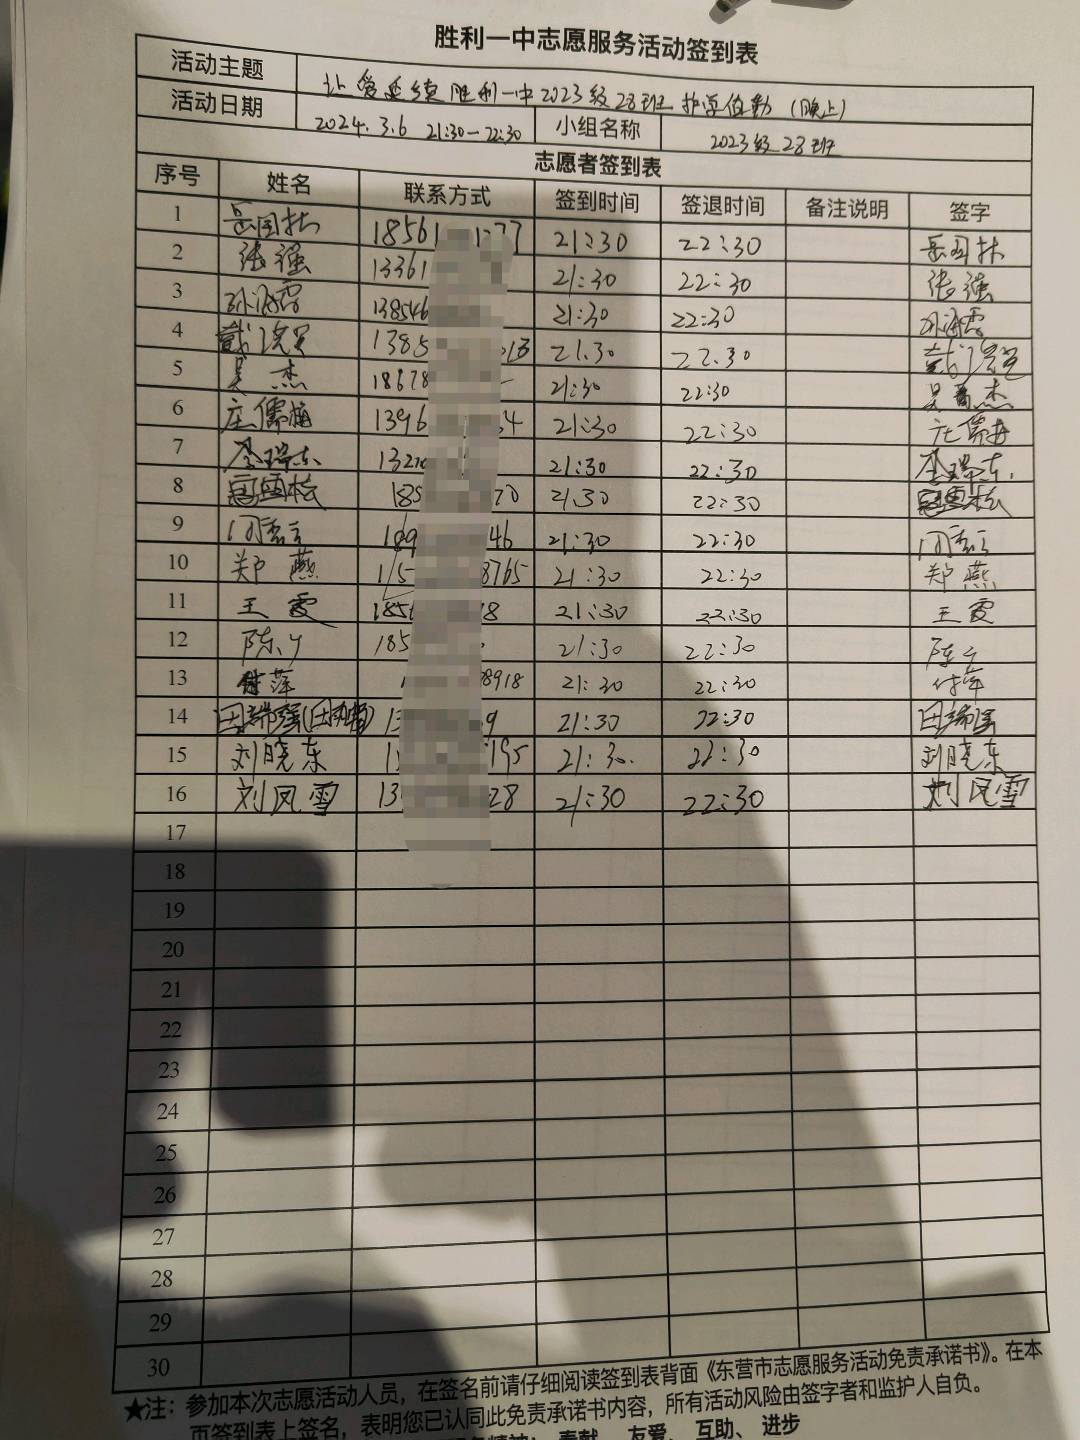 胜利一中志愿服务活动签到表
活动主题 让爱延续胜利一中2023级28班护学值勤（晚上）
活动日期 2024.3.6 21:30—22:30 小组名称 2023级28班
志愿者签到表
序号 姓名 联系方式 签到时间 签退时间 备注说明 签字
1 岳国林 18561 1277 21:30 22:30 岳国林
2 张强 13361 21:30 22:30 张强
3 138546 21:30 22:30
4 1385 013 21.30 22.30
5 吴杰 18678 21:30 22:30 吴 杰
6 1396 4 21:30 22:30
7 瑞东 13210 21:30 22:30 瑞东
8 寇雪松 185 70 21.30 22:30 寇雪松
9 189 46 21:30 22:30
10 郑燕 15 8765 21:30 22:30 郑燕
11 王霞 1856 8 21:30 22:30 王霞
12 185 21:30 22:30
13 付萍 8918 21:30 22:30 付萍
14 田瑞强 13 9 21:30 22:30 田瑞强
15 刘晓东 1 195 21:30. 22:30 刘晓东
16 刘风雪 13 28 21:30 22:30 刘风雪
17
18
19
20
21
22
23
24
25
26
27
28
29
30
★注：参加本次志愿活动人员，在签名前请仔细阅读签到表背面《东营市志愿服务活动免责承诺书》。在本
页签到表上签名，表明您已认同此免责承诺书内容，所有活动风险由签字者和监护人自负。
奉献、友爱、互助、进步